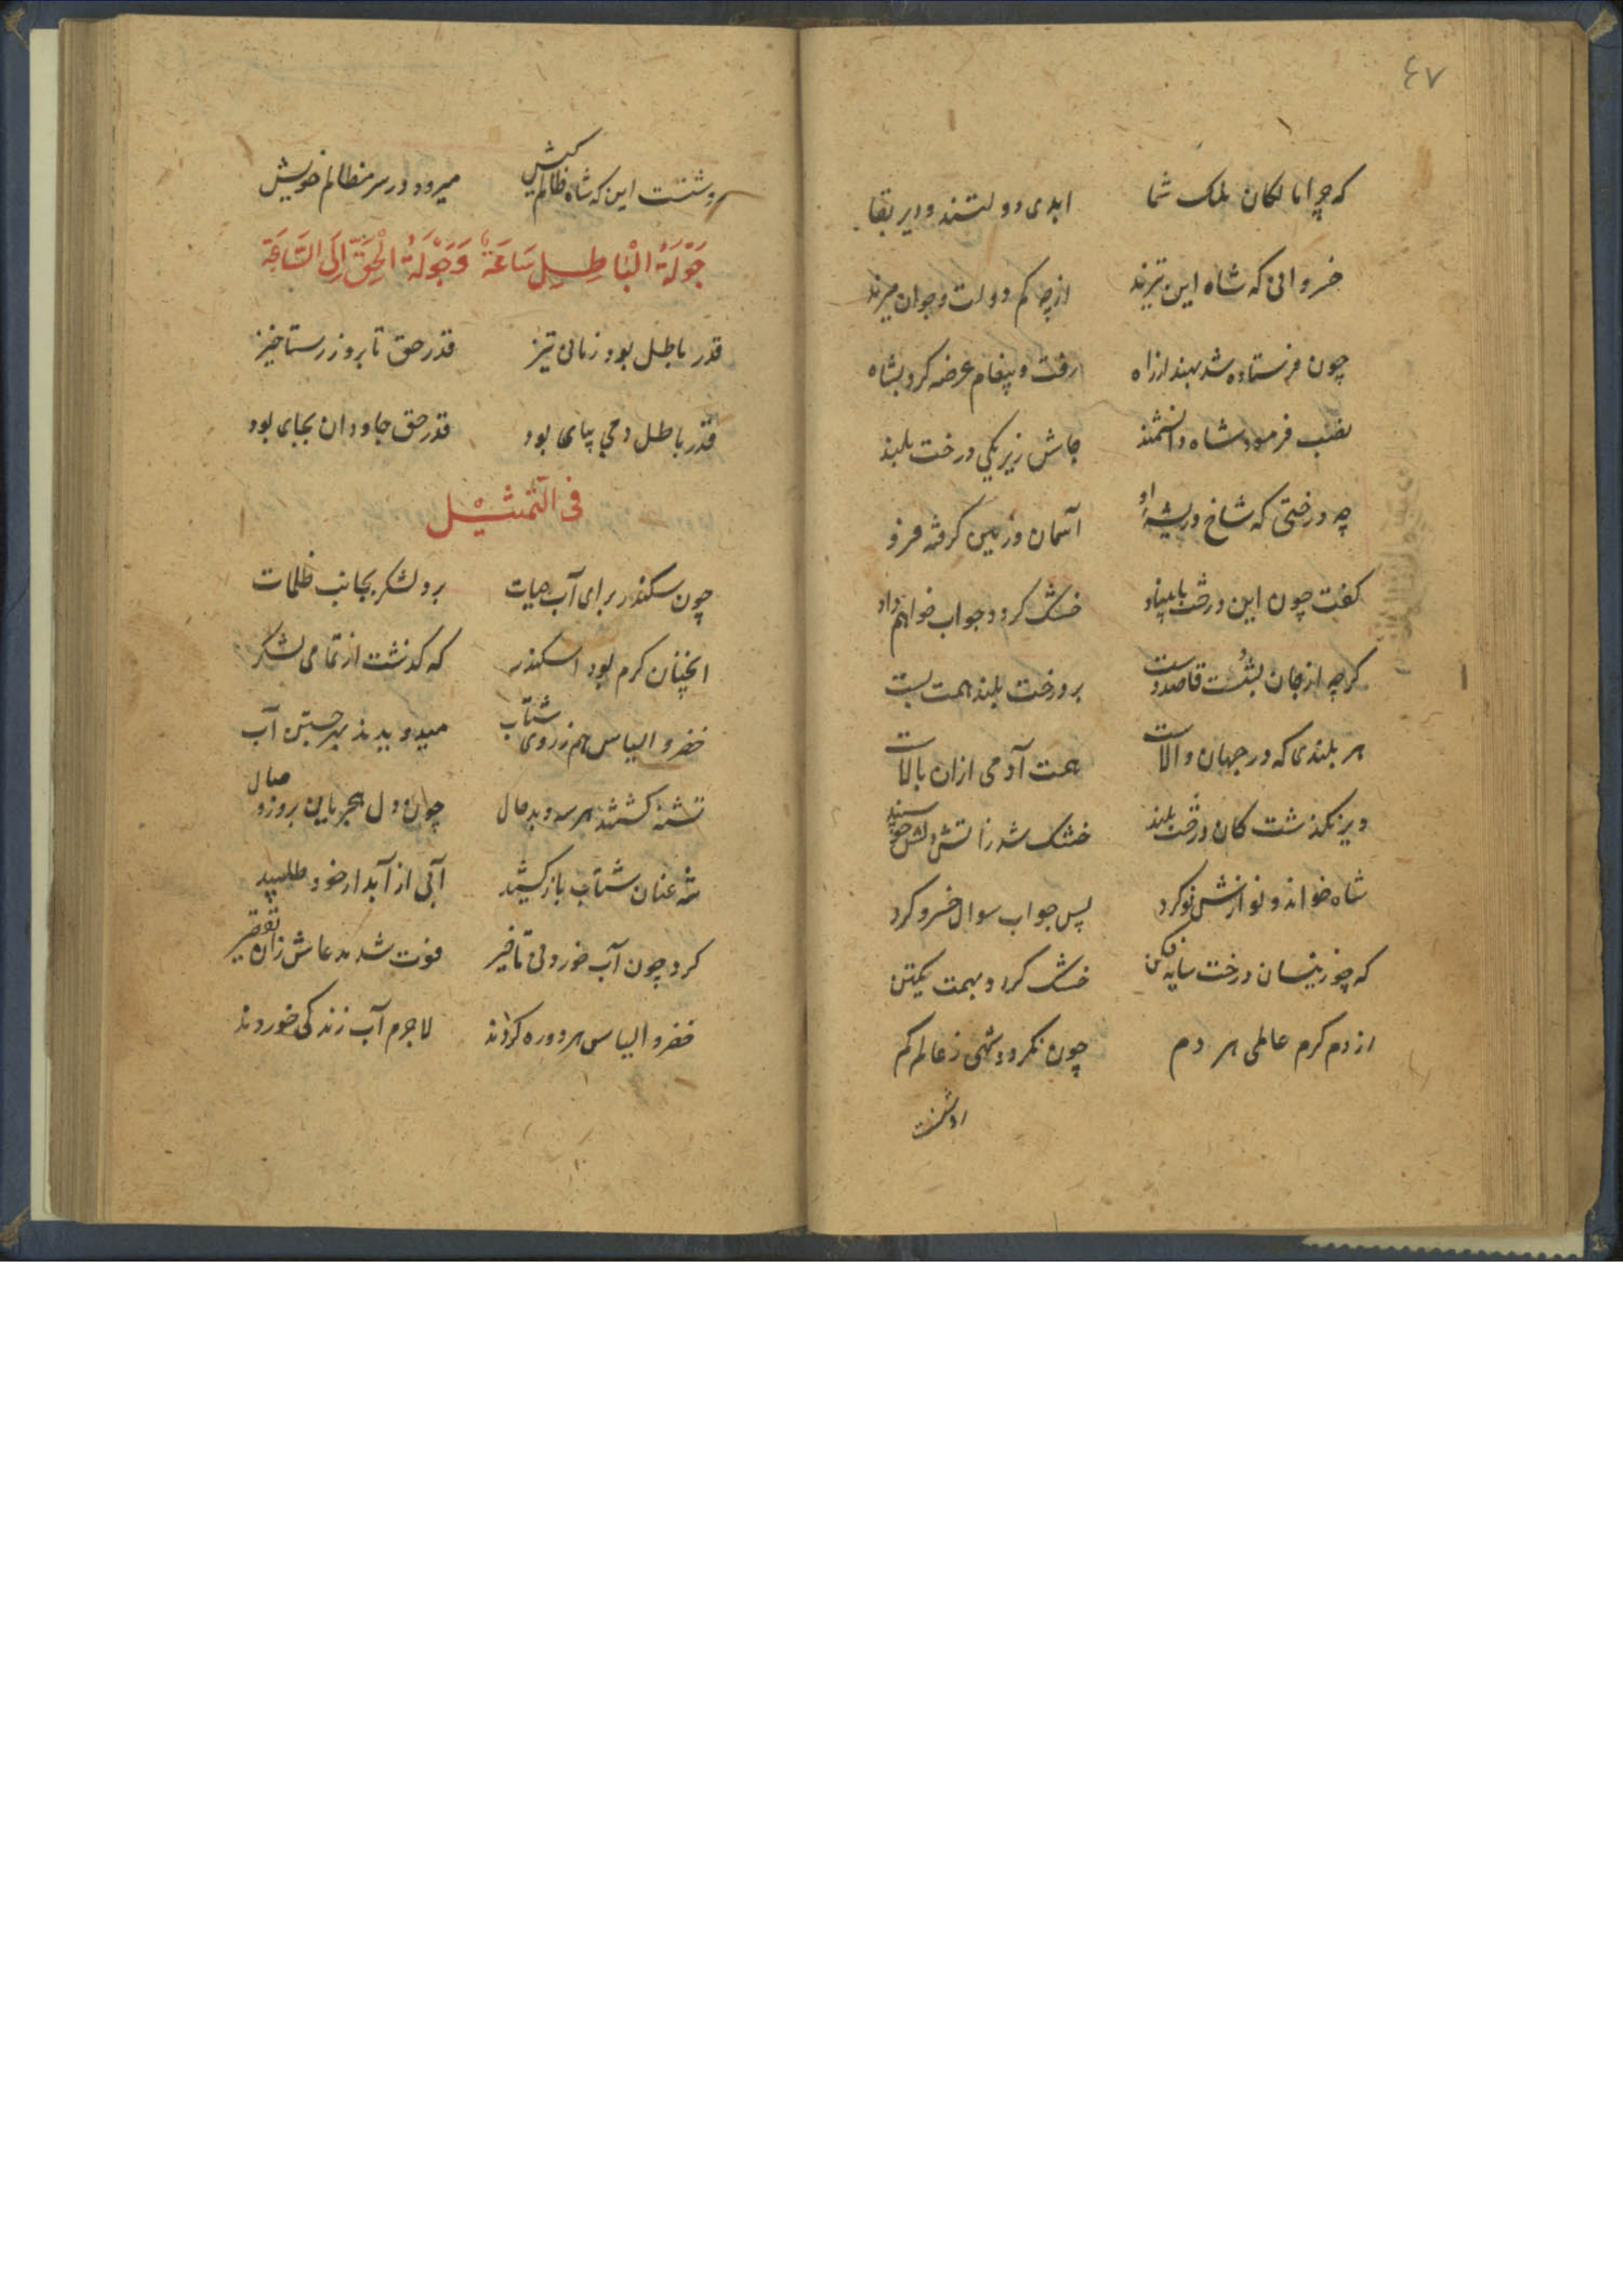 ٤٧
که چرا مالکان ملک شما ابدی دولتند و دیر بقا
خسروانی که شاه این تیرند از چه کم دولت و جوان میرند
چون فرستاده شد بهند از راه رفت و پیغام عرضه کرد بشاه
نصب فرمود شاه دانشمند جاش زیر یکی درخت بلند
چه درختی که شاخ و ریشهٔ او آسمان و زمین گرفته فرو
گفت چون این درخت بی‌بنیاد خشک گردد جواب خواهم داد
گرچه از جان بشست قاصد دست بر درخت بلند همت بست
هر بلندی که در جهان والاست همت آدمی ازان بالاست
دیر نگذشت کان درخت بلند خشک شد ز آتش دلش چو سپند
شاه خواند و نوازش نو کرد پس جواب سوال خسرو کرد
که چو زینسان درخت سایه فکن خشک گردد بهمت یکتن
از دم گرم عالمی هر دم چون نگردد شهی ز عالم کم
روشنست
روشنست این که شاه ظالم کیش میرود در سر مظالم خویش
جَوْلَةُ الْبَاطِلِ سَاعَةٌ وَجَوْلَةُ الْحَقِّ اِلَى السَّاعَةِ
قدر باطل بود زمانی تیز قدر حق تا بروز رستاخیز
قدر باطل دمی بپای بود قدر حق جاودان بجای بود
فی التمثیل
چون سکندر برای آب حیات برد لشکر بجانب ظلمات
انچنان گرم بود اسکندر که گذشت از تمامی لشکر
خضر و الیاس هم ز روی شتاب میدویدند بهر جستن آب
تشنه گشتند هر سه و بدحال چون دل هجریان بروز وصال
شه عنان شتاب باز کشید آبی از آبدار خود طلبید
کرد چون آب خوردنی تاخیر فوت شد مدعاش زان تقصیر
خضر و الیاس هر دو ره کردند لاجرم آب زندگی خوردند